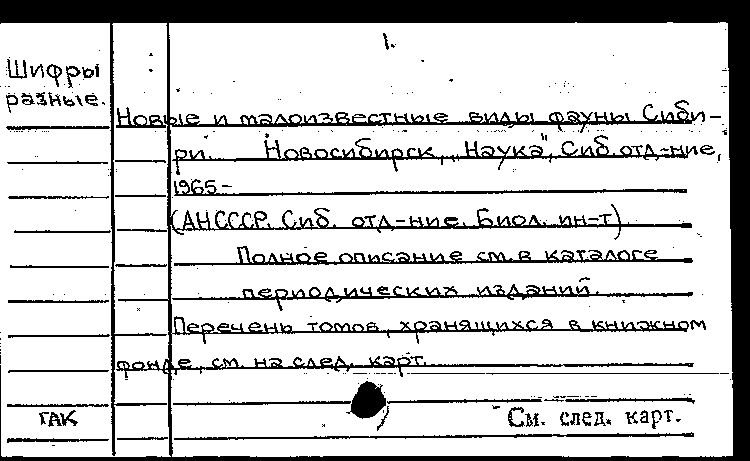 1.
Шифры
разные.
Новые и малоизвестные виды фауны Сиби-
ри. Новосибирск, „Наука", Сиб. отд-ние,
1965-
(АН СССР. Сиб. отд-ние. Биол. ин-т)
Полное описание см. в каталоге
периодических изданий.
Перечень томов, хранящихся в книжном
фонде, см. на след. карт.
ГАК
См. след. карт.